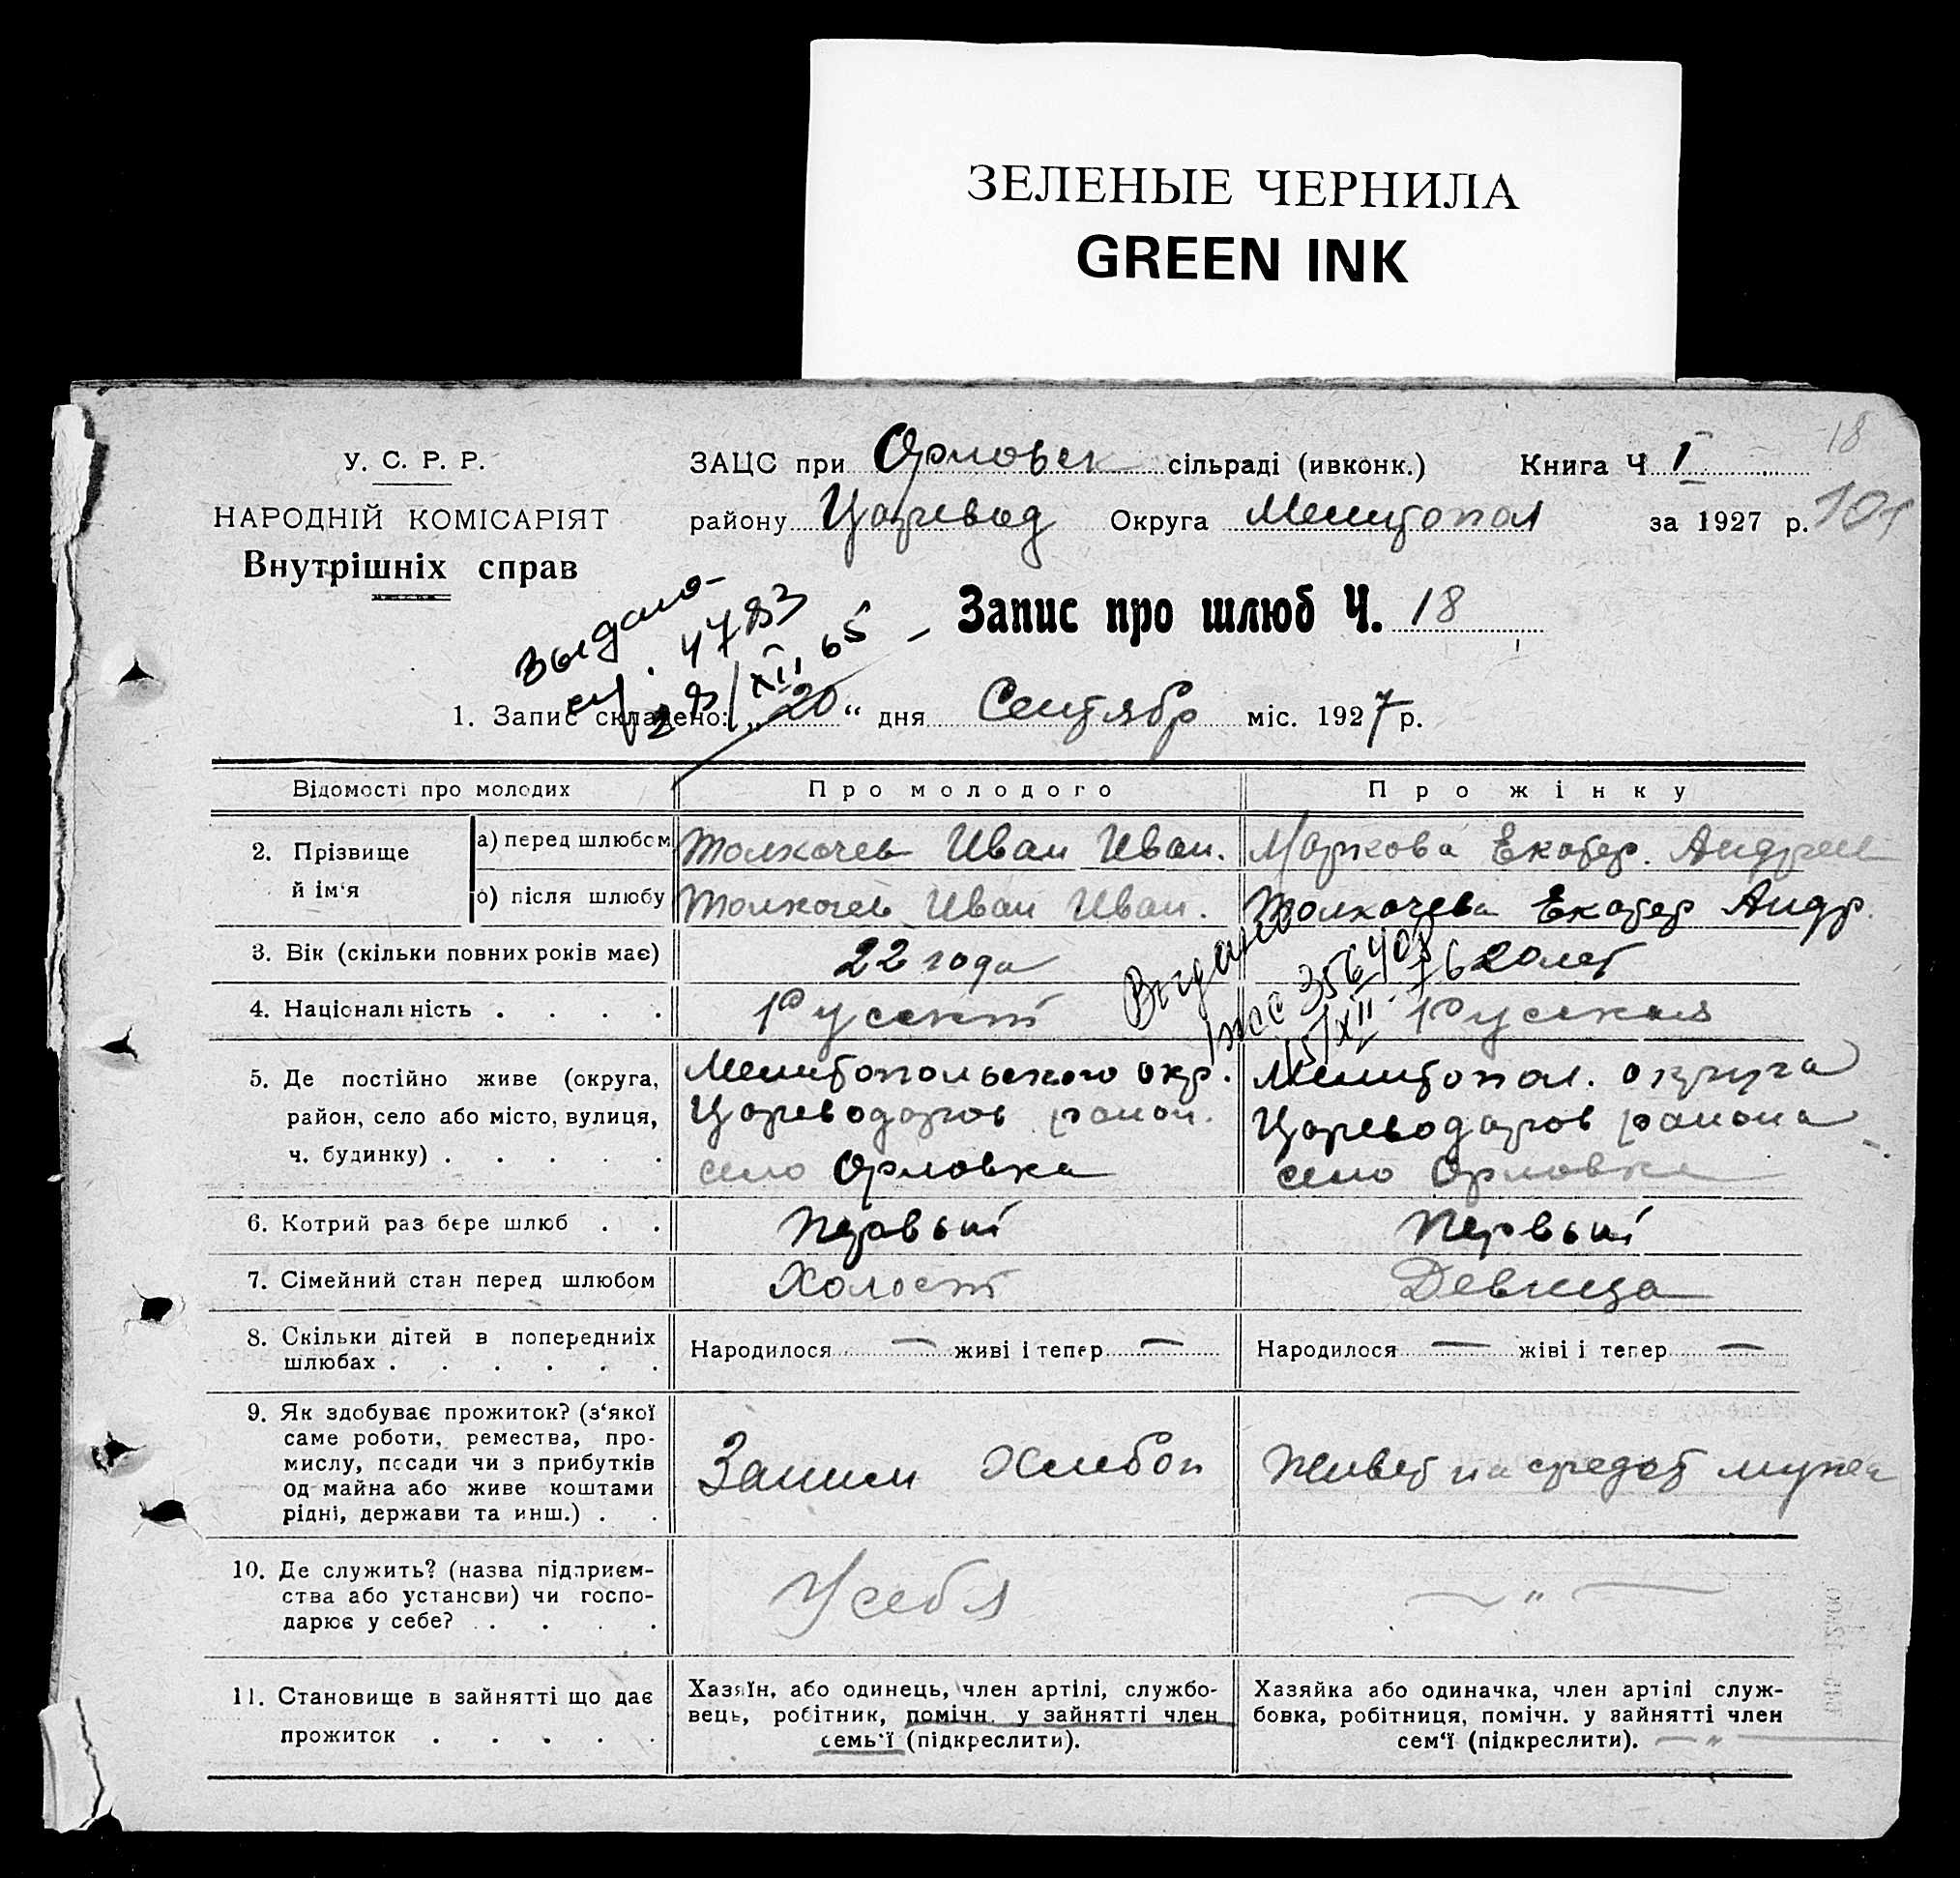 ЗЕЛЕНЫЕ ЧЕРНИЛА
GREEN INK
18
У. С. Р. Р.
ЗАЦС при Орловск сільраді (ивконк.) Книга Ч I
НАРОДНІЙ КОМІСАРІЯТ
району Царевод Округа Мелитопол за 1927 р.
Внутрішніх справ
Выдано
4783
/XII 65
Запис про шлюб Ч. 18
1. Запис складено: „ 20 “ дня Сентябр міс. 1927 р.
Відомості про молодих Про молодого Про жінку
2. Прізвище й ім‘я
а) перед шлюбом Толкачев Иван Иван. Маркова Екатер. Андреев
б) після шлюбу Толкачев Иван Иван. Толкачева Екатер Андр.
3. Вік (скільки повних років має) 22 года 20 лет
Выдано
356407
15/XII 76
4. Національність . . . . Русский Русская
5. Де постійно живе (округа, район, село або місто, вулиця, ч. будинку) . . . . .
Мелитопольского окр.
Цареводаров район.
село Орловка
Мелитопол. округа
Цареводаров района
село Орловка
6. Котрий раз бере шлюб . . Первый Первый
7. Сімейний стан перед шлюбом Холост Девица
8. Скільки дітей в попередниіх шлюбах . . . . . .
Народилося — живі і тепер — Народилося — жіві і тепер —
9. Як здобуває прожиток? (з‘якої
саме роботи, ремества, про-
мислу, посади чи з прибутків
од майна або живе коштами
рідні, держави та инш.) . .
Заним Хлебоп Живет на средст мужа
10. Де служить? (назва підприєм-
ства або установи) чи госпо-
дарює у себе? . . . . .
У себя — „ —
11. Становище в зайнятті що дає
прожиток . . . . .
Хазяїн, або одинець, член артілі, службо-
вець, робітник, помічн. у зайнятті член
семь‘ї (підкреслити).
Хазяйка або одиначка, член артілі служ-
бовка, робітниця, помічн. у зайнятті член
сем‘ї (підкреслити). — „ —